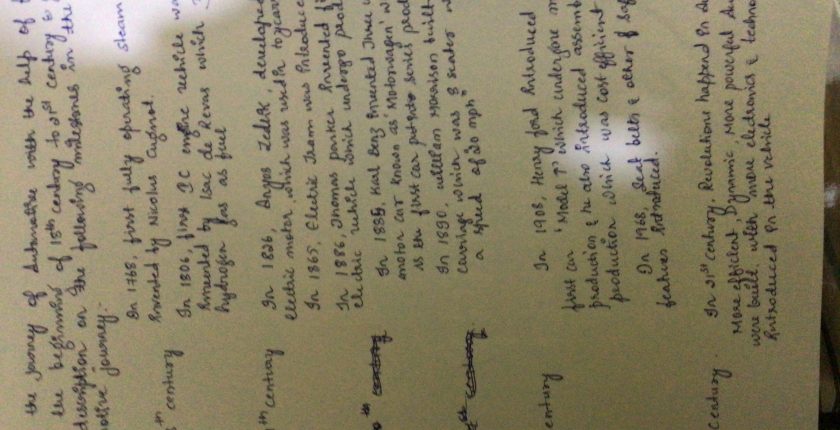 the journey of Automative with the help of
the beginning of 18th century to 21st century &
description on the following milestones in the
motive journey:-
th century
In 1768, first fully operating steam
Invented by Nicolus Cugnot.
In 1806, first IC engine vehicle wa
Invented by Isac de Revas which
hydrogen gas as fuel
th century
In 1826, Anyos Jedlik, develope
electric motor, which was used in
In 1865, Electric Tram was Introduce
In 1886, Thomas parker Invented
electric vehicle which undergo prod
In 1885, Karl Benz Invented Three
motor car known as 'Motorwagen' w
is the first car put into series prod
In 1890, William Morrison built
carriage which was 8 seater w
a speed of 20 mph"
th century
th century
entury
In 1908, Henry ford Introduced
first car 'Model T' which undergone m
production & he also introduced assemb
production which was cost efficient
In 1968, Seat belts & other of saf
features Introduced.
Century.
In 21st Century, Revolutions happend in
More efficient Dynamic, More powerful
were built, with more electronics & techno
Introduced in the vehicle